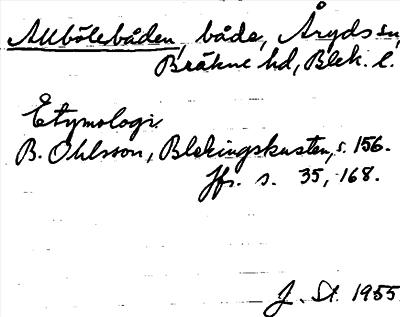 Allbölebåden, både, Åryds sn,
Bräkne hd, Blek. l.
Etymologi.
B. Ohlsson, Blekingskusten, s. 156.
Jfr. s. 35, 168.
J. St. 1955